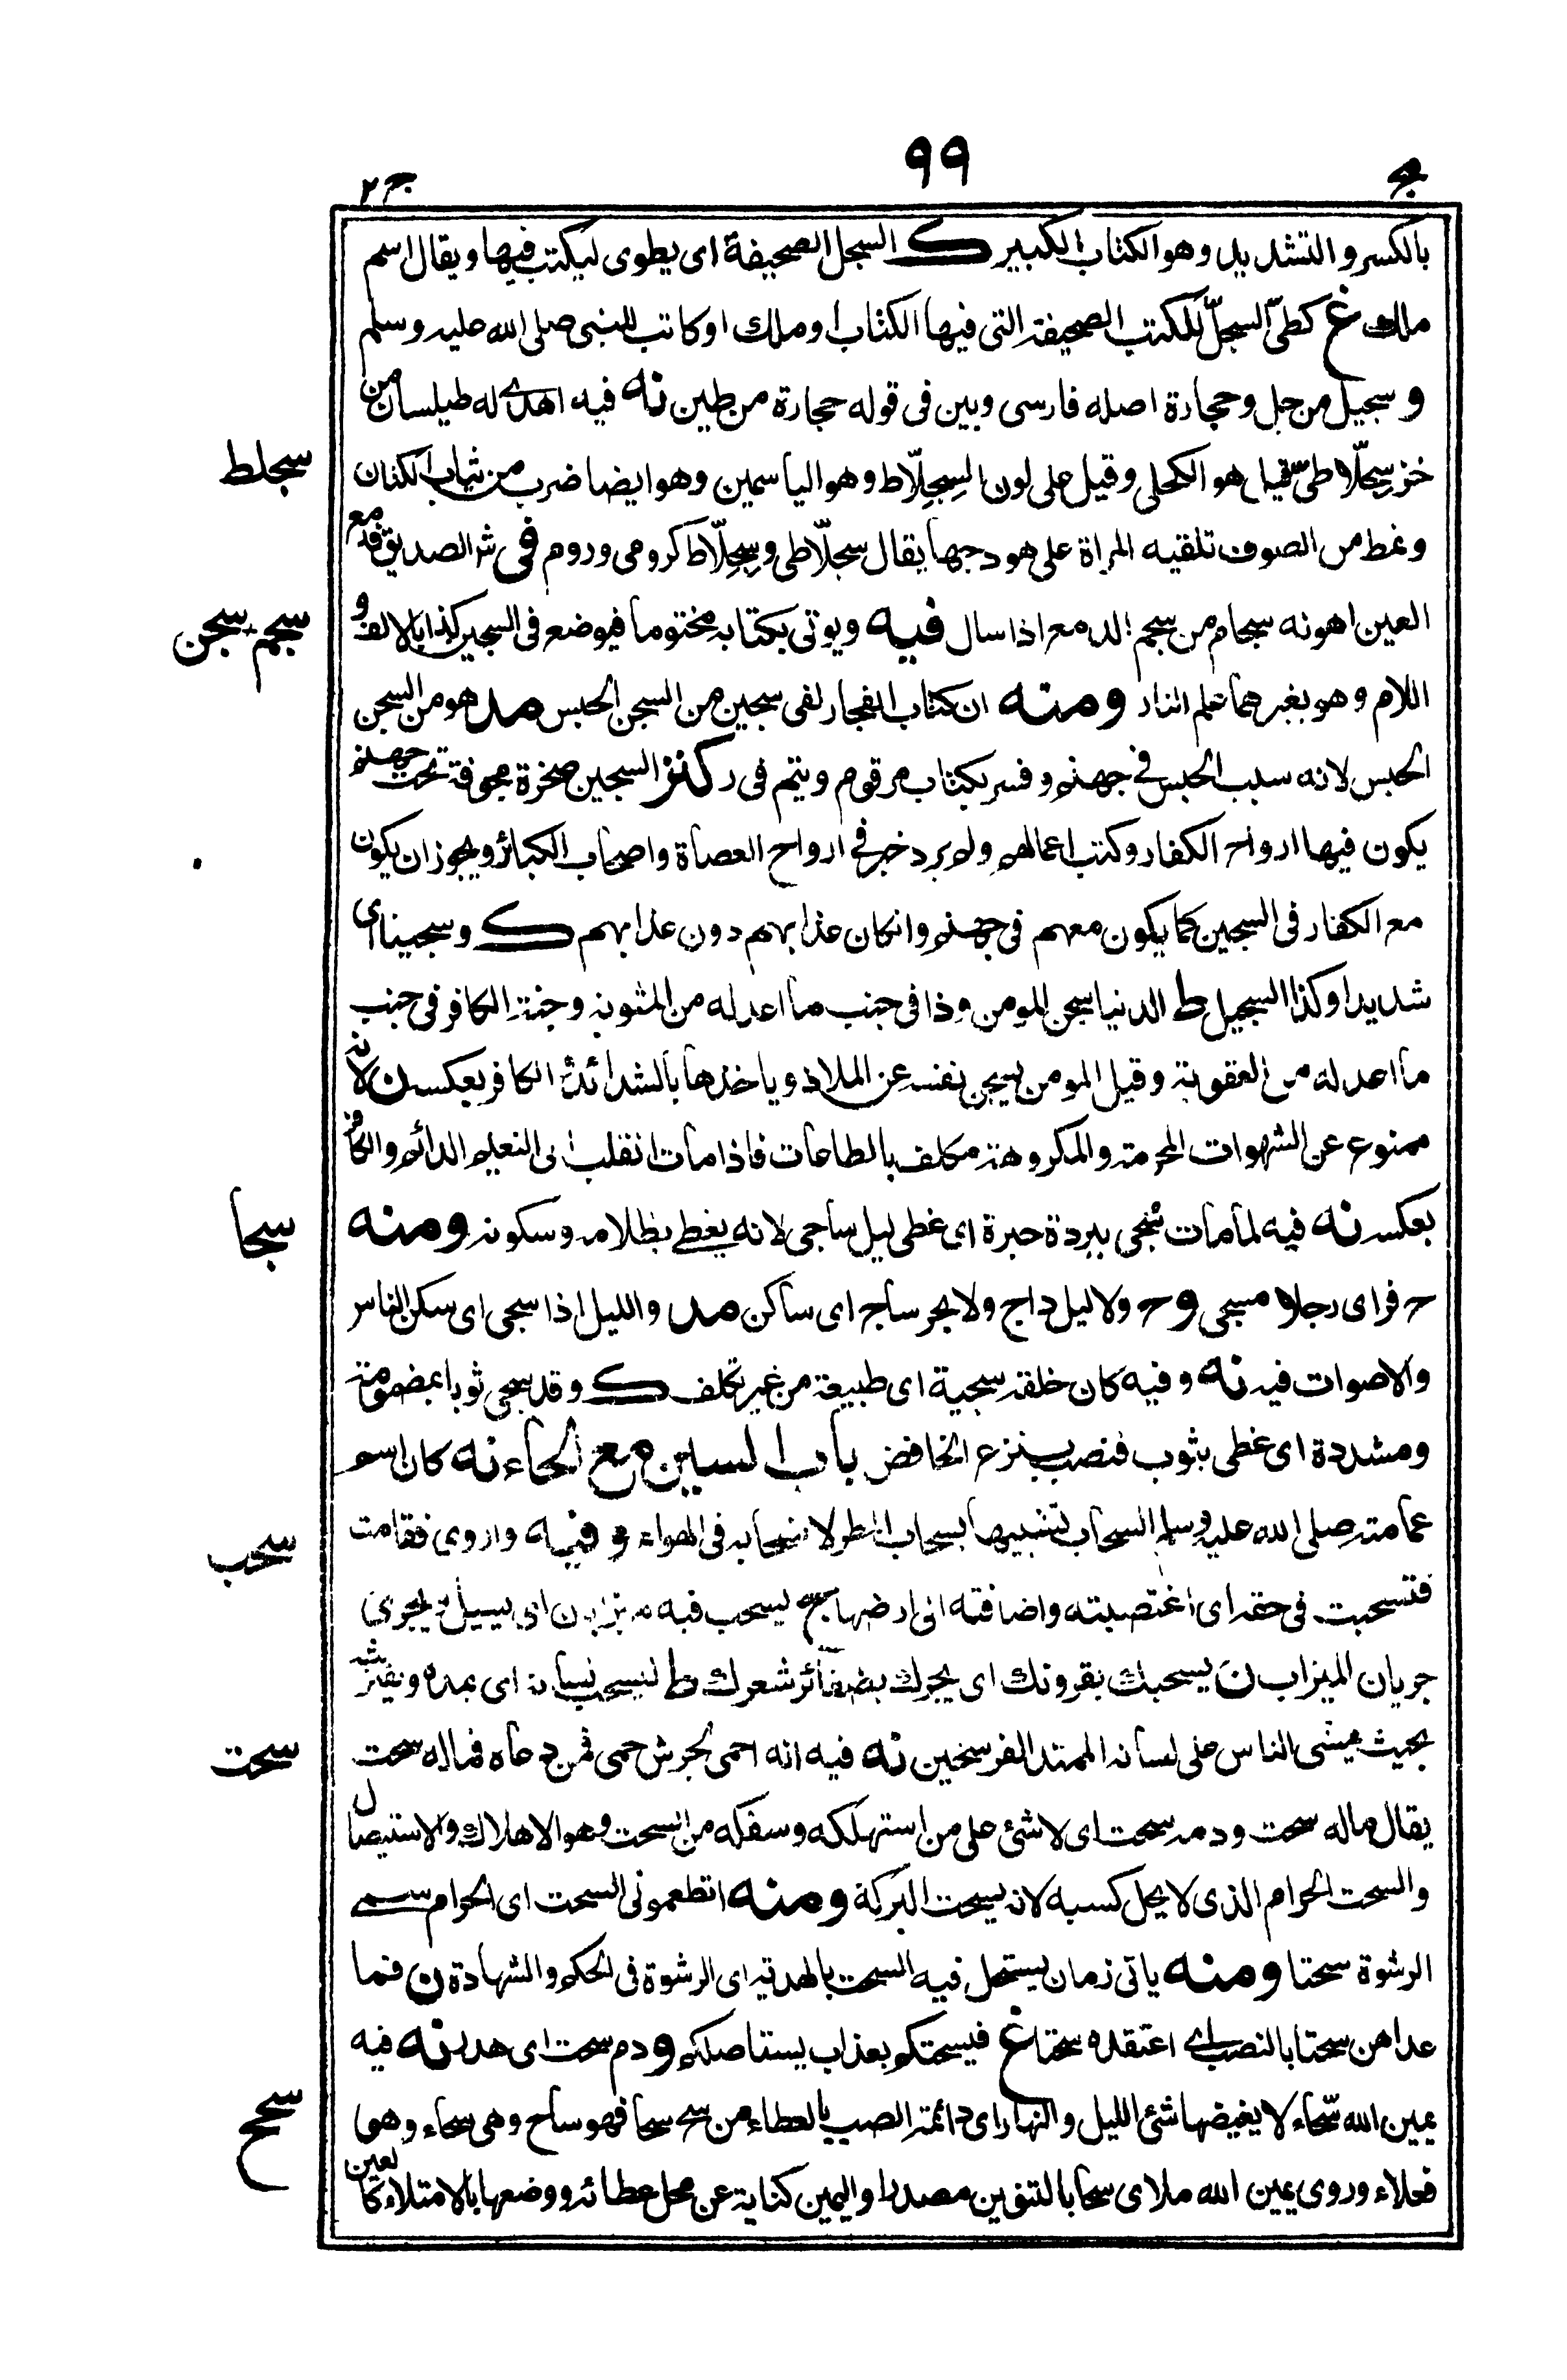 ج ٢
٩٩
بالكسر والتشديد وهو الكتاب الكبير ك السجل الصحيفة اى يطوى ليكتب فيها ويقال اسم
ملك غ كطىّ السجلّ للكتب الصحيفة التى فيها الكتاب او ملك او كاتب للنبى صلى الله عليه وسلم
و سجيل من جل وحجارة اصله فارسى وبين فى قوله حجارة من طين نه فيه اهدى له طيلسان من
سجلط
خز سجلّاطىّ قيل هو الكحلى وقيل على لون السِجِلّاط وهو الياسمين وهو ايضا ضرب من ثياب الكتان
ونمط من الصوف تلقيه المراة على هودجها يقال سجلّاطى وسِجِلّاط كرومى وروم فى شر الصديق فدمع
سجم - سجن
العين اهونه سجام من سجم الدمع اذا سال فيه ويوتى بكتابه مختوما فيوضع فى السجين كذا بالالف و
اللام وهو بغيرهما علم النار ومنه ان كتاب الفجار لفى سجين من السجن الحبس مد هو من السجن
الحبس لانه سبب الحبس فى جهنم وفسر بكتاب مرقوم ويتم فى ر كنز السجين صخرة مجوفة تحت جهنم
يكون فيها ارواح الكفار وكتب اعمالهم ولم يرد خبر فى ارواح العصاة واصحاب الكبائر ويجوز ان يكون
مع الكفار فى السجين كما يكون معهم فى جهنم وانكان عذابهم دون عذابهم ك وسجينا اى
شديدا وكذا السجيل ط الدنيا سجن المومن وذا فى جنب ما اعد له من المثوبة وجنة الكافر فى جنب
ما اعد له من العقوبة وقيل المومن يسجن نفسه عن الملاذ وياخذها بالشدائد والكافر بعكسه ن لانه
ممنوع عن الشهوات المحرمة والمكروهة مكلف بالطاعات فاذا مات انقلب الى النعيم الدائم والكافر
سجا
بعكسه نه فيه لما مات سُجى ببردة حبرة اى غطى ليل ساجى لانه يغطى بظلامه وسكونه ومنه
ح فراى رجلا مسجى و ح ولا ليل داج ولا بحر ساج اى ساكن مد والليل اذا سجى اى سكن الناس
والاصوات فيه نه وفيه كان خلقه سجية اى طبيعة من غير تكلف ك وقد سجى ثوبا بمضمومة
ومشددة اى غطى بثوب فنصب بنزع الخافض باب السين مع الحاء نه كان اسم
سحب
عمامته صلى الله عليه وسلم السحاب لتشبيهها بسحاب المطر لانسحابه فى الهواء و فيه واروى فقامت
فتسحبت فى حقه اى اغتصبته واضافته الى ارضها يسحب فيه ميزابان اى يسيل يجرى
جريان الميزاب ن يسحبك بقرونك اى يجرك بضفائر شعرك ط ليسحب لسانه اى يمده ويفترشه
سحت
بحيث يمشى الناس على لسانه الممتد الفرسخين نه فيه انه احمى لجرش حمى فمن دعاه فماله سحت
يقال ماله سحت ودمه سحت اى لا شئ على من استهلكه وسفكه من السحت وهو الاهلاك والاستيصال
والسحت الحرام الذى لا يحل كسبه لانه يسحت البركة ومنه اتطعمونى السحت اى الحرام سمى
الرشوة سحتا ومنه ياتى زمان يستحل فيه السحت بالهدية اى الرشوة فى الحكم والشهادة ن فما
عداهن سحتا بالنصب اى اعتقده سحتا غ فيسحتكم بعذاب يستاصلكم و دم سحت اى هدر نه فيه
سحح
يمين الله سحّاء لا يغيضها شئ الليل والنهار اى دائمة الصب بالعطاء من سح سحا فهو ساح وهى سحاء وهى
فعلاء وروى يمين الله ملاى سحا بالتنوين مصدرا واليمين كناية عن محل عطائه ووضعها بالامتلاء كالعين